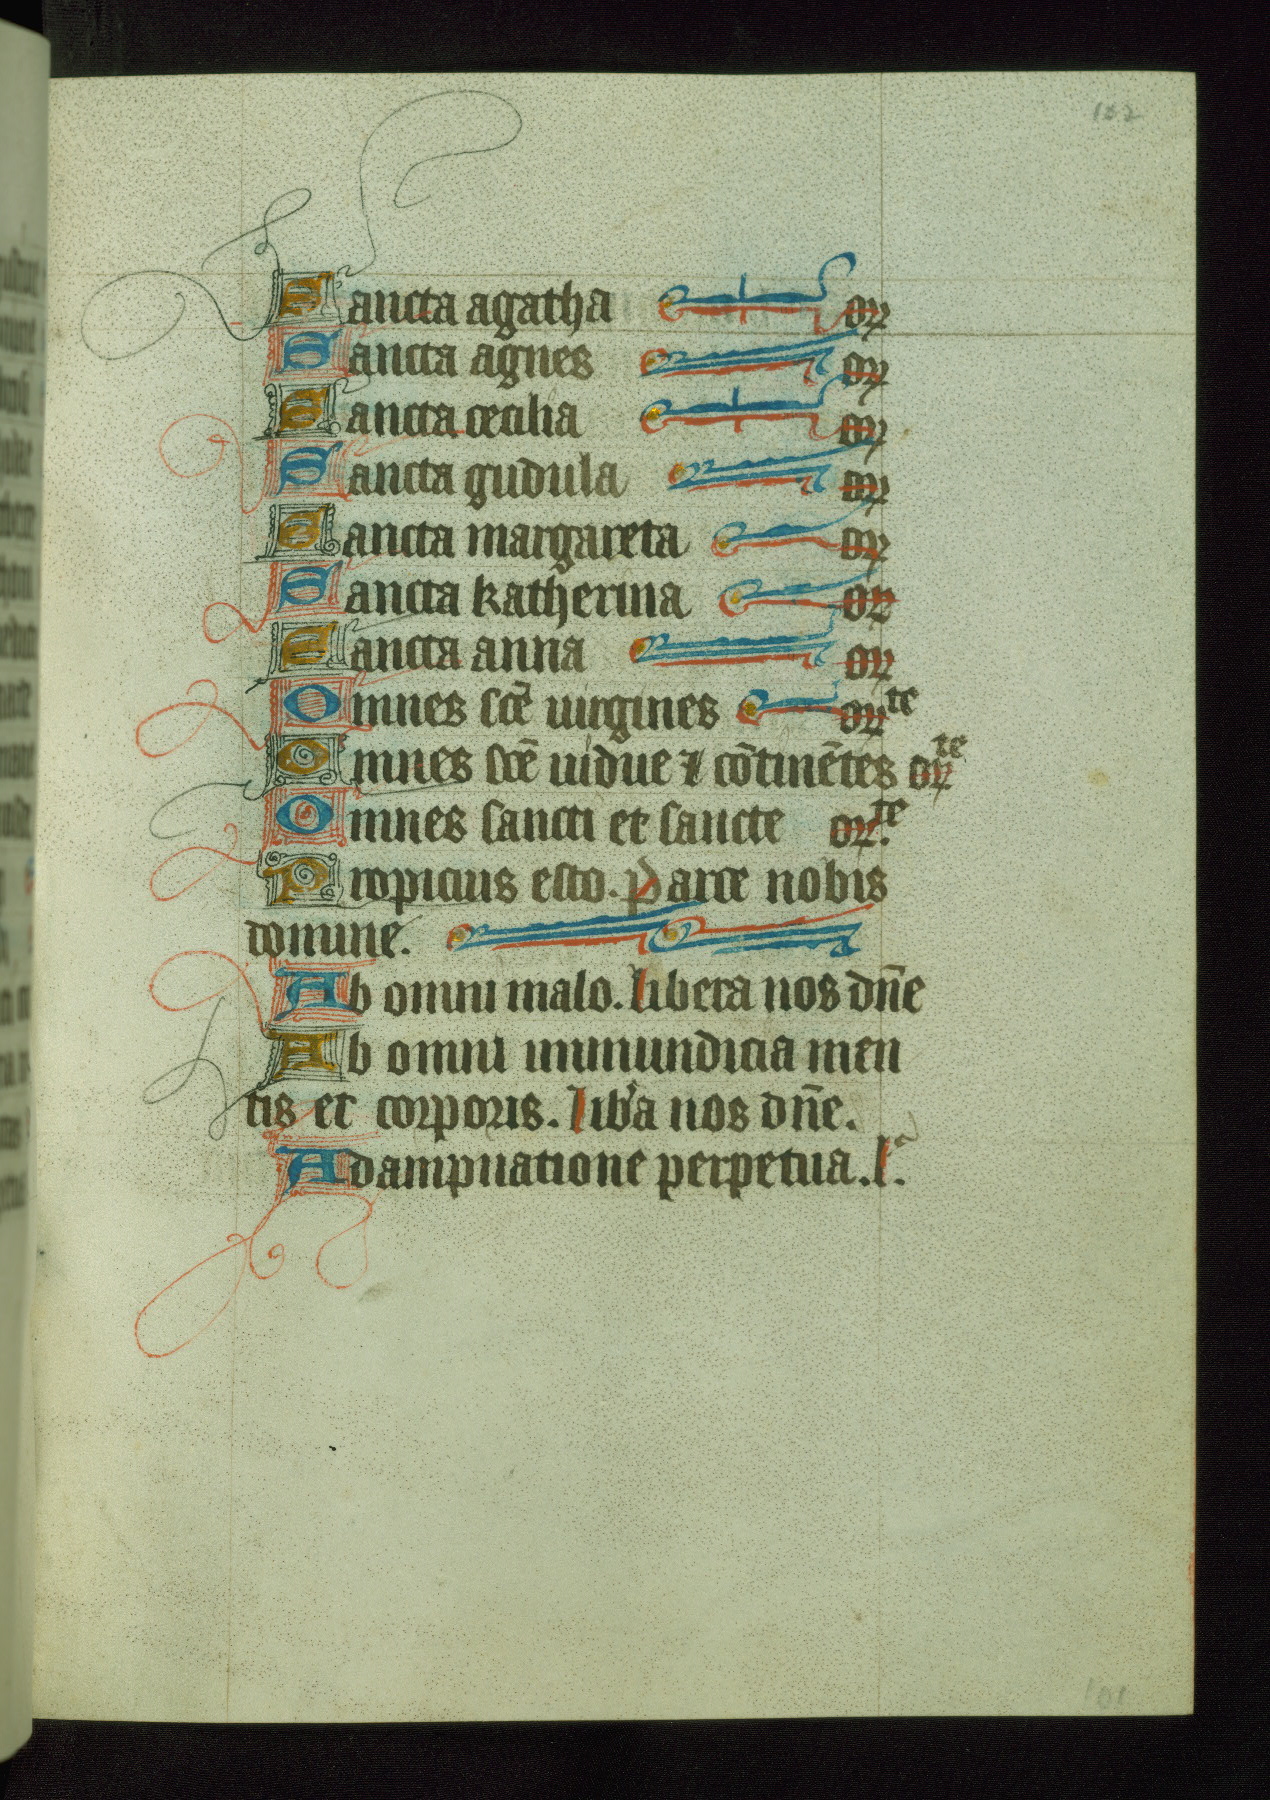 102
Sancta agatha or
Sancta agnes or
Sancta cecilia or
Sancta gudula or
Sancta margareta or
Sancta katherina or
Sancta anna or
Omnes scē uirgines orte
Omnes scē uidue ⁊ cōtinētes orte
Omnes sancti et sancte orte.
Propicius esto. Parce nobis
domine.
Ab omni malo. libera nos dn̄e
Ab omni inmundicia men
tis et corporis. liba nos dn̄e.
A dampnatione perpetua. l.
101